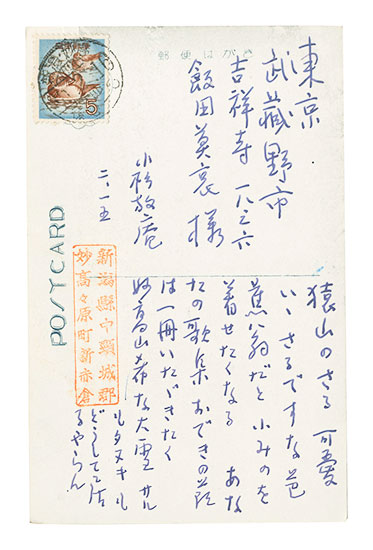 郵便はがき
東京
武蔵野市
吉祥寺 一八三六
飯田莫哀様
小杉放庵
二、一五
新潟縣中頸城郡
妙高々原町新赤倉
POSTCARD
猿山のさる 可愛
いゝさるですな 芭
蕉翁だと 小みのを
着せたくなる あな
たの歌集 おできの節
は一冊いたゞきたく
妙高山 希な大雪 サル
ルタヌキル
どうして居
るやらん
5